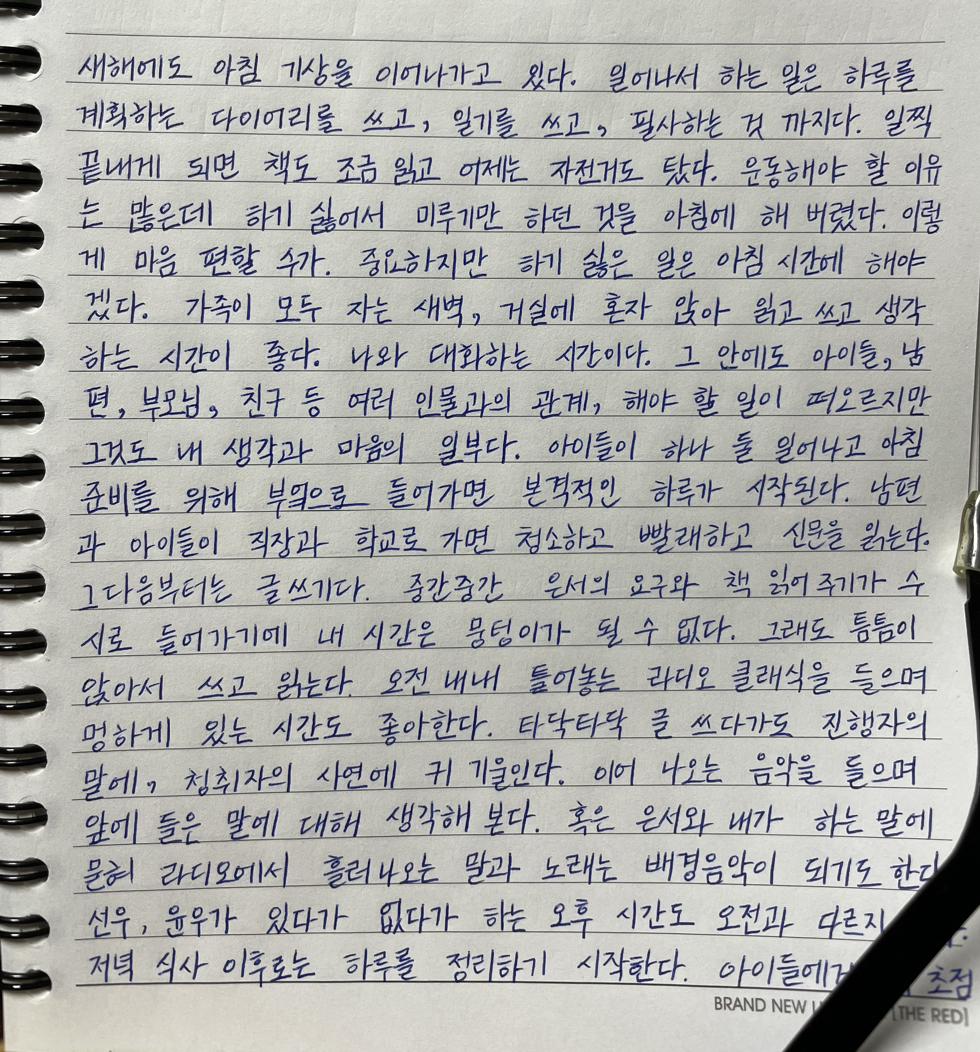 새해에도 아침 기상을 이어나가고 있다. 일어나서 하는 일은 하루를
계획하는 다이어리를 쓰고, 일기를 쓰고, 필사하는 것 까지다. 일찍
끝내게 되면 책도 조금 읽고 어제는 자전거도 탔다. 운동해야 할 이유
는 많은데 하기 싫어서 미루기만 하던 것을 아침에 해 버렸다. 이렇
게 마음 편할 수가. 중요하지만 하기 싫은 일은 아침 시간에 해야
겠다. 가족이 모두 자는 새벽, 거실에 혼자 앉아 읽고 쓰고 생각
하는 시간이 좋다. 나와 대화하는 시간이다. 그 안에도 아이들, 남
편, 부모님, 친구 등 여러 인물과의 관계, 해야 할 일이 떠오르지만
그것도 내 생각과 마음의 일부다. 아이들이 하나 둘 일어나고 아침
준비를 위해 부엌으로 들어가면 본격적인 하루가 시작된다. 남편
과 아이들이 직장과 학교로 가면 청소하고 빨래하고 신문을 읽는다.
그다음부터는 글쓰기다. 중간중간 은서의 요구와 책 읽어 주기가 수
시로 들어가기에 내 시간은 뭉텅이가 될 수 없다. 그래도 틈틈이
앉아서 쓰고 읽는다. 오전 내내 틀어놓는 라디오 클래식을 들으며
멍하게 있는 시간도 좋아한다. 타닥타닥 글 쓰다가도 진행자의
말에, 청취자의 사연에 귀 기울인다. 이어 나오는 음악을 들으며
앞에 들은 말에 대해 생각해 본다. 혹은 은서와 내가 하는 말에
묻혀 라디오에서 흘러나오는 말과 노래는 배경음악이 되기도 한다
선우, 윤우가 있다가 없다가 하는 오후 시간도 오전과 다르지
저녁 식사 이후로는 하루를 정리하기 시작한다. 아이들에게 초점
BRAND NEW [THE RED]